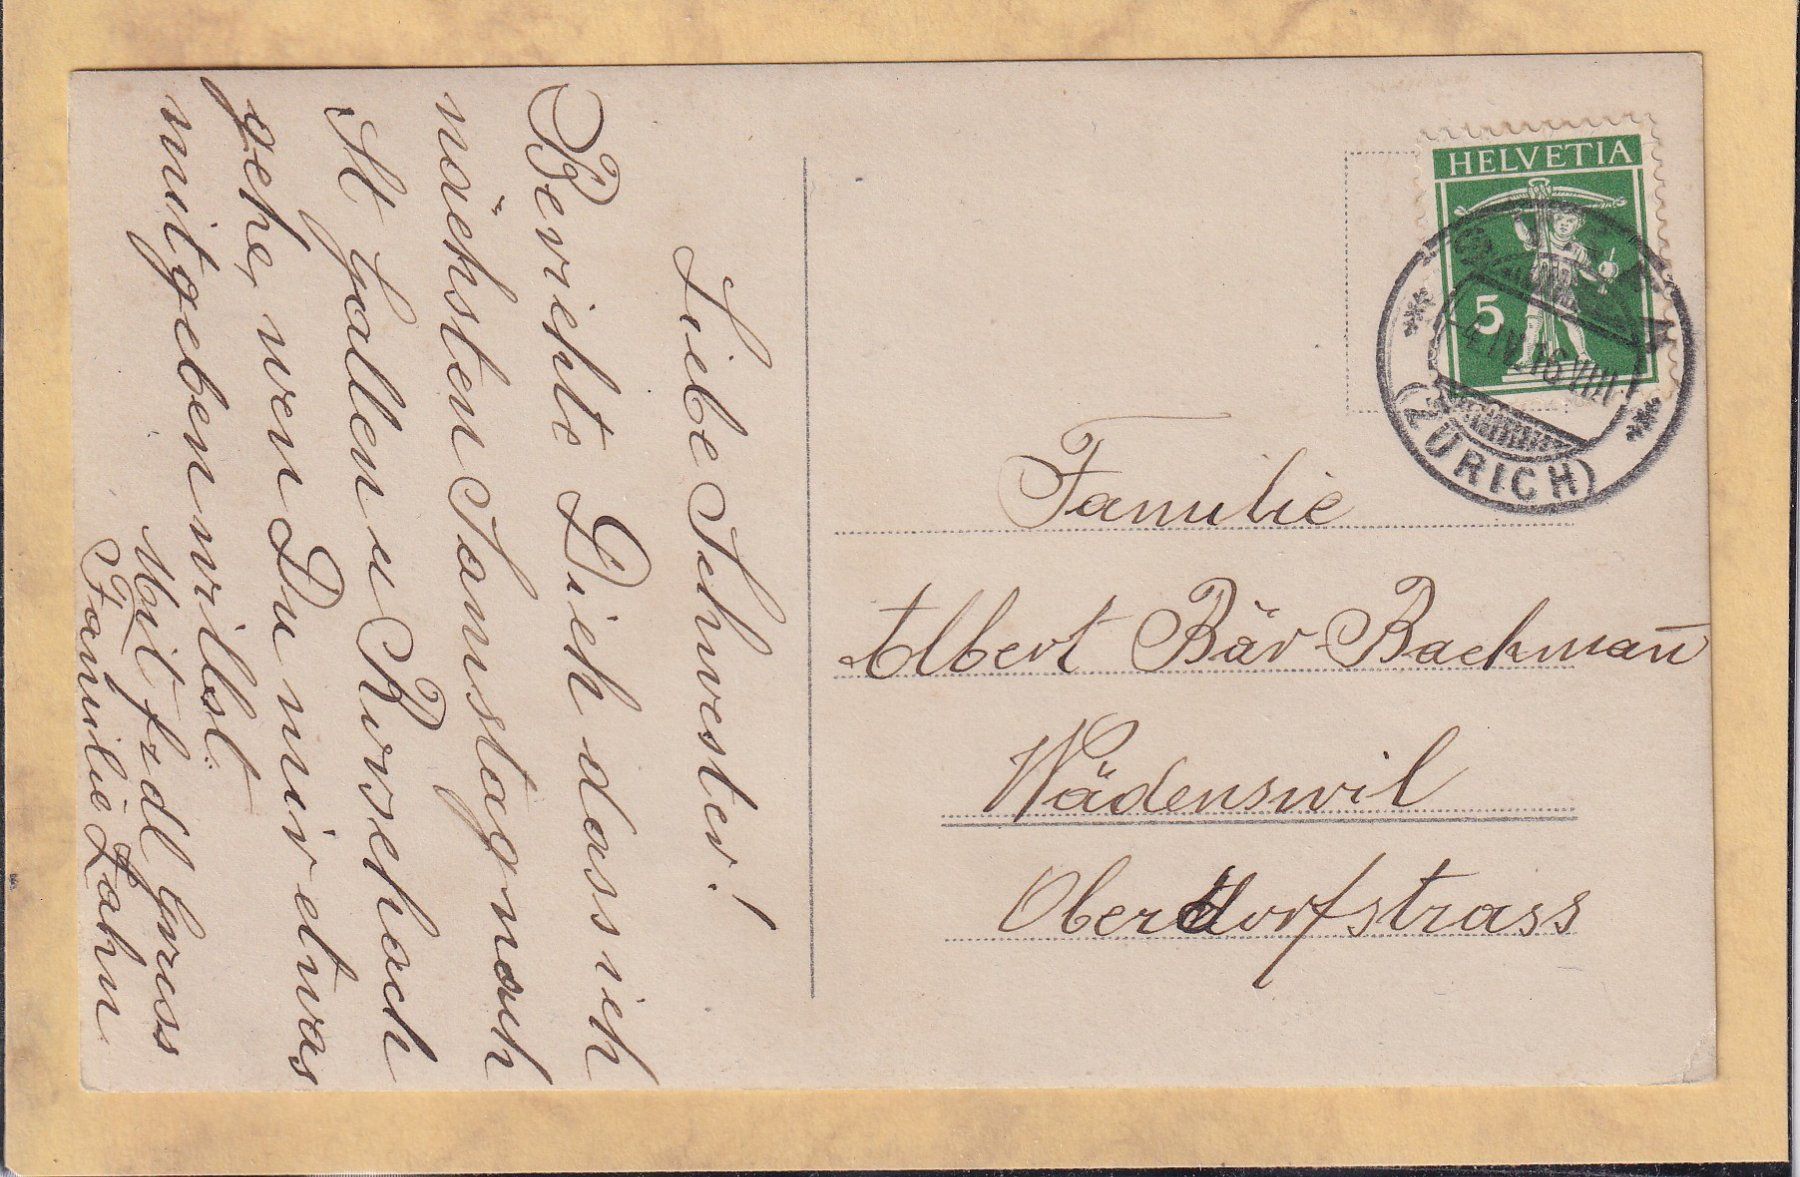 Liebe Schwester!
Berichte Dich dass ich
nächsten Samstag nach
St Gallen u Rorschach
gehe, wen Du mir etwas
mitgeben willst.
Mit frdl Gruss
Familie Zahn
HELVETIA
5
4.IV.16.VIII
(ZÜRICH)
Familie
Albert Bär-Backman̄
Wädenswil
Oberdorfstrass